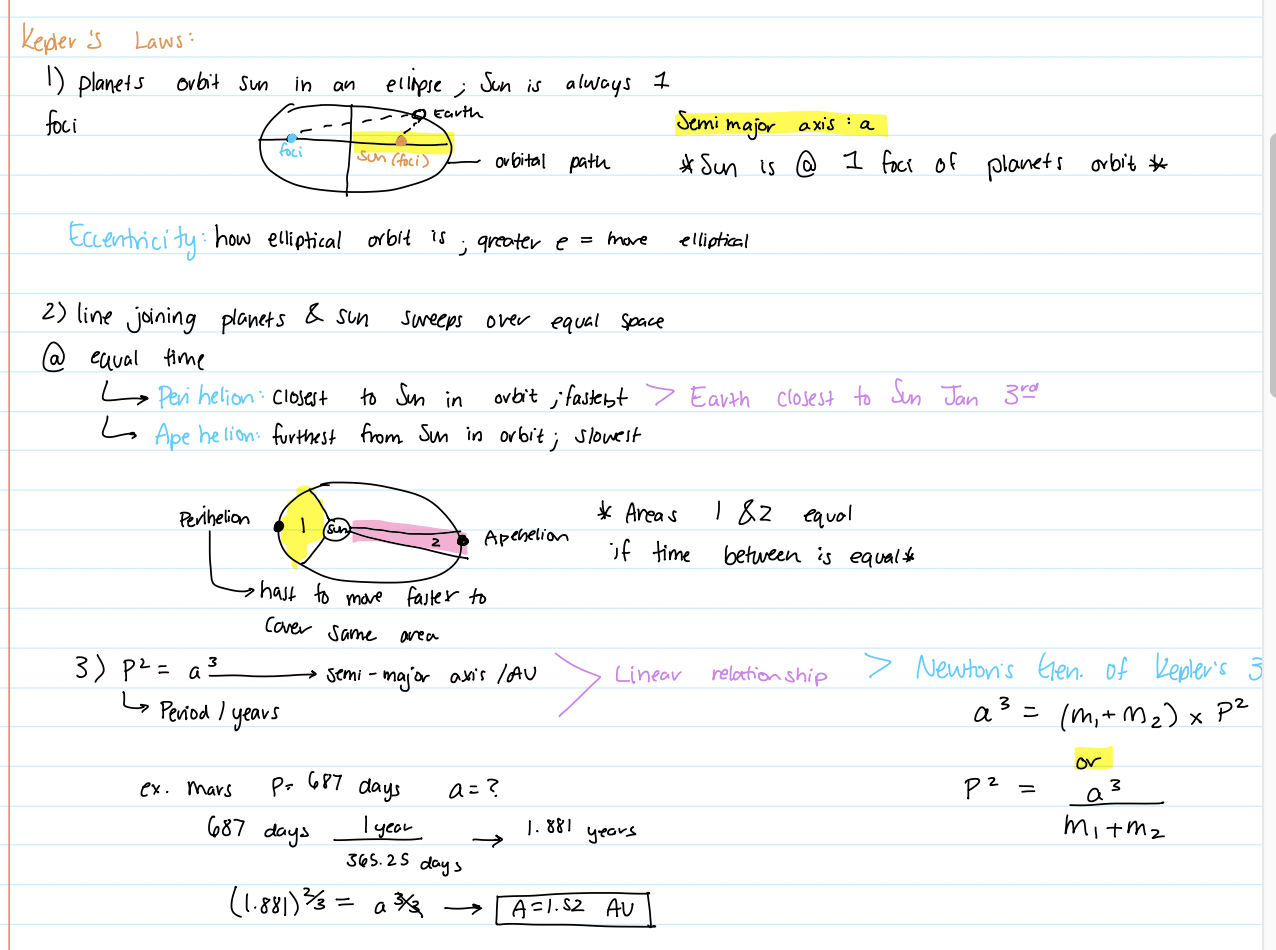 Kepler's Laws:
1) planets orbit sun in an ellipse ; Sun is always 1
foci
Earth
foci
sun (foci)
orbital path
Semi major axis : a
*Sun is @ 1 foci of planets orbit *
Eccentricity: how elliptical orbit is ; greater e = more elliptical
2) line joining planets & sun sweeps over equal space
@ equal time
Perihelion: closest to Sun in orbit ; fastest > Earth closest to Sun Jan 3rd
Apehelion: furthest from Sun in orbit ; slowest
Perihelion
1
sun
2
Apehelion
* Areas 1 & 2 equal
if time between is equal*
hast to move faster to
cover same area
3) P² = a³ → semi-major axis /AU > Linear relationship > Newton's Gen. of Kepler's 3
Period / years
a³ = (m₁+m₂) x P²
or
P² = a³ / m₁+m₂
ex. mars P= 687 days a = ?
687 days 1 year / 365.25 days → 1.881 years
(1.881)^2/3 = a^3/3 → A=1.52 AU